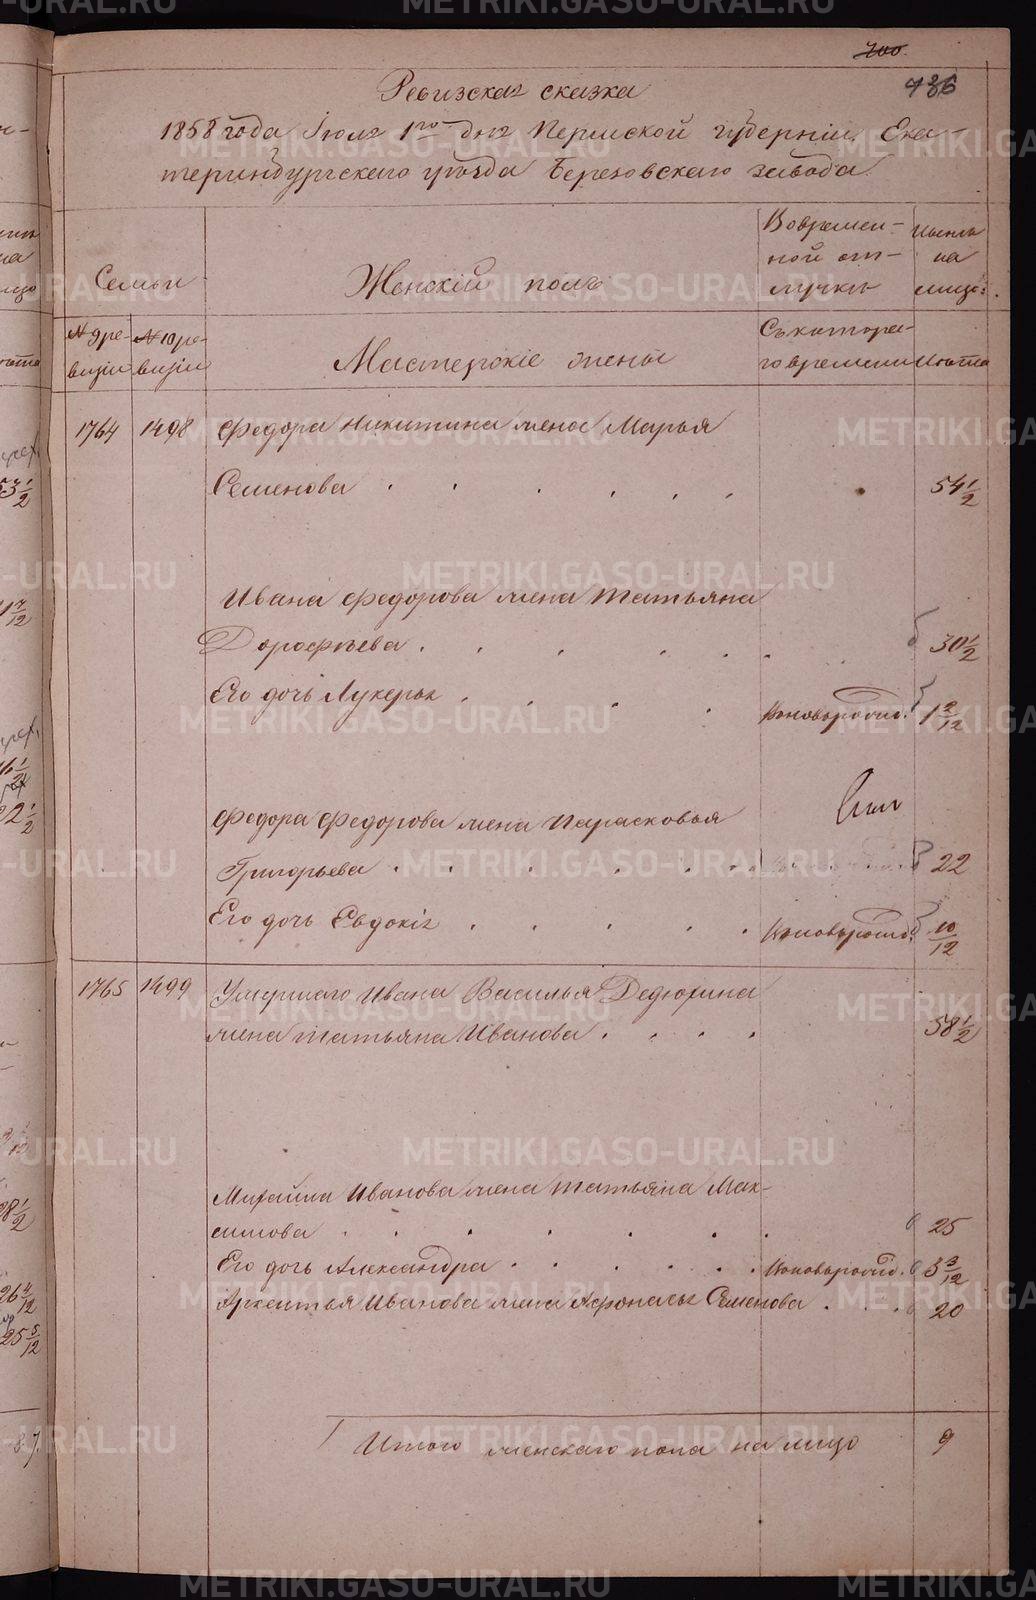 700
736
Ревизская сказка
1858 года Июля 1го дня Пермской губернiи Ека-
теринбургскаго уѣзда Березовскаго завода.
Семьи
Женскiй полъ
Во времен-
ной от-
лучкѣ
Нынѣ
на
лицо.
№ 9 ре-
визiи
№ 10 ре-
визiи
Мастерскiе жены
Съ котора-
го времени
Лѣта
1764 1498 Федора Никитина жена Марья
Семенова . . . . . . 54 1/2
Ивана Федорова жена Татьяна
Дорофѣева . . . . . . 30 1/2
Его дочь Лукерья . . . . Новорожд. 1 2/12
Федора Федорова жена Парасковья
Григорьева . . . . . . 22
Его дочь Евдокiя . . . . . Новорожд. 10/12
1765 1499 Умершаго Ивана Васильева Дедюхина
жена Татьяна Иванова . . . . 58 1/2
Михайла Иванова жена Татьяна Мак-
симова . . . . . . . 25
Его дочь Александра . . . . . . Новорожд. 3 3/12
Арсентья Иванова жена Афонасья Семенова . . . 20
Итого женскаго пола на лицо 9
METRIKI.GASO-URAL.RU